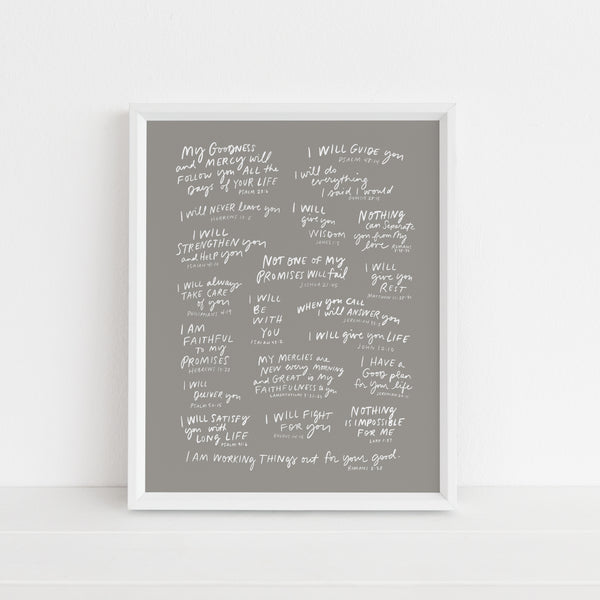 My GOODNESS
and MERCY will
FOLLOW you ALL the
DAYS of YOUR LIFE
PSALM 23:6
I WILL GUIDE you
PSALM 48:14
I will do
everything
I said I would
I will NEVER leave you
HEBREWS 13:5
I WILL
give you
WISDOM
JAMES 1:5
NOTHING
can separate
you from My
love ROMANS
I WILL
STRENGTHEN you
and HELP you
ISAIAH 41:10
NOT ONE of MY
PROMISES WILL fail
JOSHUA 21:45
I WILL
give you
REST
I will always
TAKE CARE
of you
PHILIPPIANS 4:19
I WILL
BE
WITH
YOU
ISAIAH 43:2
WHEN you CALL
I will ANSWER you
JEREMIAH 33:3
I AM
FAITHFUL
to my
PROMISES
HEBREWS 10:23
I WILL give you LIFE
JOHN 10:10
MY MERCIES are
NEW every morning
and GREAT is My
FAITHFULNESS to you
LAMENTATIONS 3:22-23
I HAVE a
GOOD plan
for your life
JEREMIAH 29:11
I WILL
DELIVER you
I WILL SATISFY
you with
LONG LIFE
PSALM 91:16
I WILL FIGHT
FOR you
EXODUS 14:14
NOTHING
IS IMPOSSIBLE
FOR ME
LUKE 1:37
I AM WORKING THINGS out for your good.
ROMANS 8:28